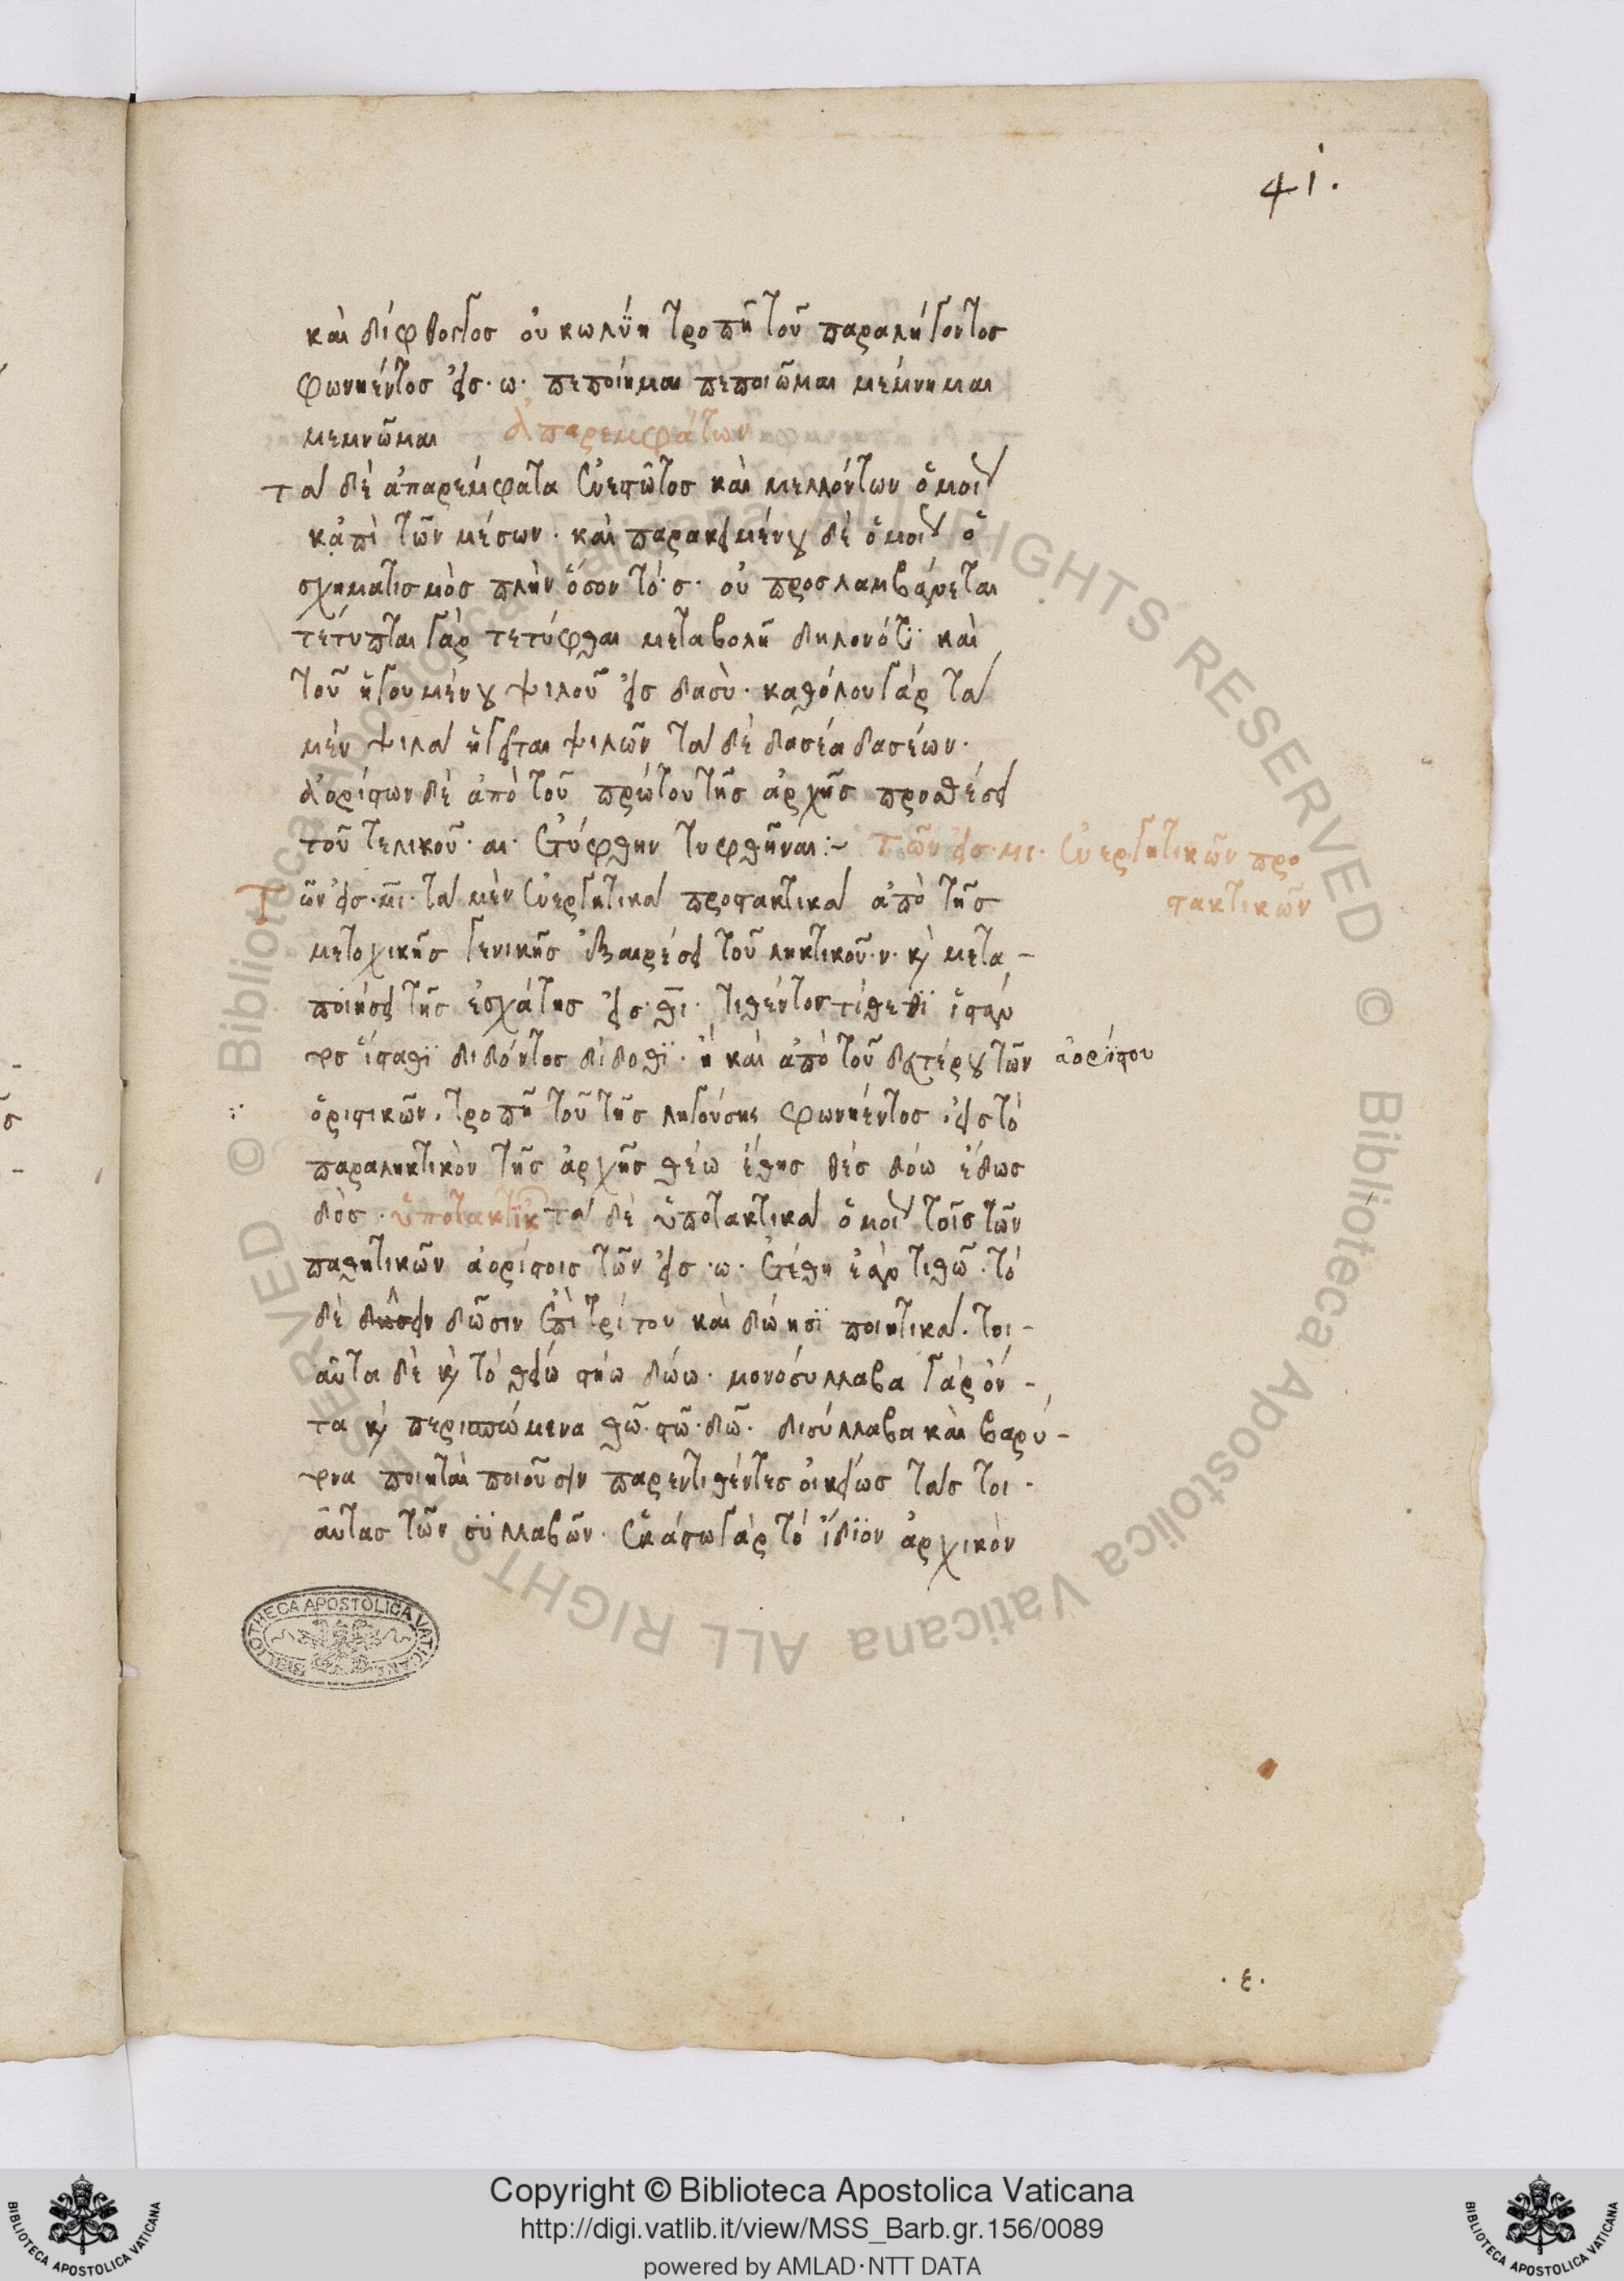 41.
καὶ δίφθογγος οὐ κωλύη τροπῆ τοῦ παραλήγοντος
φωνηέντος εἰς · ω · πεποίημαι πεποιῶμαι μέμνημαι
μεμνῶμαι ἀπαρεμφάτων
τὰ δὲ ἀπαρέμφατα ἐνεστῶτος καὶ μελλόντων ὁμοί
κἀπὶ τῶν μέσων · καὶ παρακειμένου δὲ ὁμοί ὁ
σχηματισμὸς πλὴν ὅσον τό · σ · οὐ προσλαμβάνεται
τέτυπται γὰρ τετύφθαι μεταβολῆ δηλονότι καὶ
τοῦ ἡγουμένου ψιλοῦ εἰς δασὺ · καθόλου γὰρ τὰ
μὲν ψιλὰ ἡγεῖται ψιλῶν τὰ δὲ δασέα δασέων ·
ἀορίστων δὲ ἀπὸ τοῦ πρώτου τῆς ἀρχῆς προσθέσει
τοῦ τελικοῦ · αι · ἐτύφθην τυφθῆναι :~ τῶν εἰς · μι · ἐνεργητικῶν προ
στακτικῶν
Τῶν εἰς · μι · τὰ μὲν ἐνεργητικὰ προστακτικὰ ἀπὸ τῆς
μετοχικῆς γενικῆς ἐξαιρέσει τοῦ ληκτικοῦ · ν · κ̀ μετα -
ποιήσει τῆς ἐσχάτης εἰς · θι · τιθέντος τίθεθϊ ἱσταν
τος ἵσταθϊ διδόντος δίδοθϊ · ἢ καὶ ἀπὸ τοῦ δευτέρου τῶν ἀορίστου
ὁριστικῶν · τροπῆ τοῦ τῆς ληγούσης φωνηέντος · εἰς τὸ
παραληκτικὸν τῆς ἀρχῆς θέω ἔθης θές δόω ἔδως
δὸς · ὑποτακτϊκ τὰ δὲ ὑποτακτικὰ ὁμοί τοῖς τῶν
παθητικῶν ἀορίστοις τῶν εἰς · ω · ἐτέθη ἐὰν τιθῶ · τὸ
δὲ δῶσιν ἐπὶ τρίτου καὶ δώησϊ ποιητικὰ · τοι -
αῦτα δὲ κ̀ τὸ θείω στήω δώω · μονόσυλλαβα γὰρ ὄν -
τα κ̀ περισπώμενα θῶ · στῶ · δῶ · δισύλλαβα καὶ βαρύ -
τονα ποιηταὶ ποιοῦσιν παρεντιθέντες οἰκείως τὰς τοι -
αῦτας τῶν σϋλλαβῶν · ἑκάστω γὰρ τὸ ἴδϊον ἀρχικὸν
BIBLIOTHECA APOSTOLICA VATICANA
· ε ·
© Biblioteca Apostolica Vaticana ALL RIGHTS RESERVED © Biblioteca Apostolica Vaticana ALL RIGHTS RESERVED
Copyright © Biblioteca Apostolica Vaticana
http://digi.vatlib.it/view/MSS_Barb.gr.156/0089
powered by AMLAD·NTT DATA
BIBLIOTECA APOSTOLICA VATICANA
BIBLIOTECA APOSTOLICA VATICANA